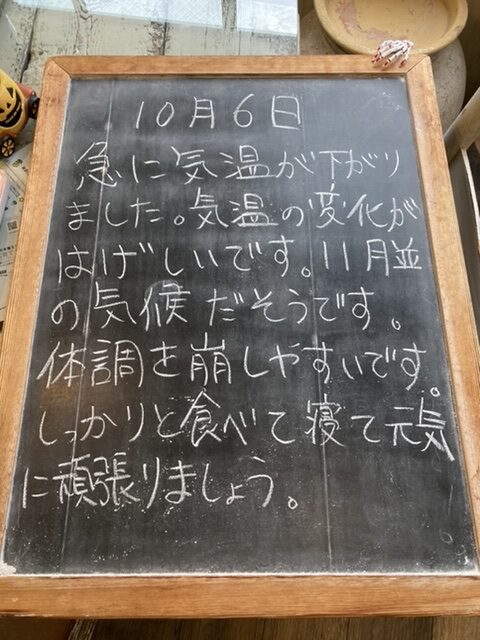 10月6日
急に気温が下がり
ました。気温の変化が
はげしいです。11月並
の気候だそうです。
体調を崩しやすいです。
しっかりと食べて寝て元気
に頑張りましょう。